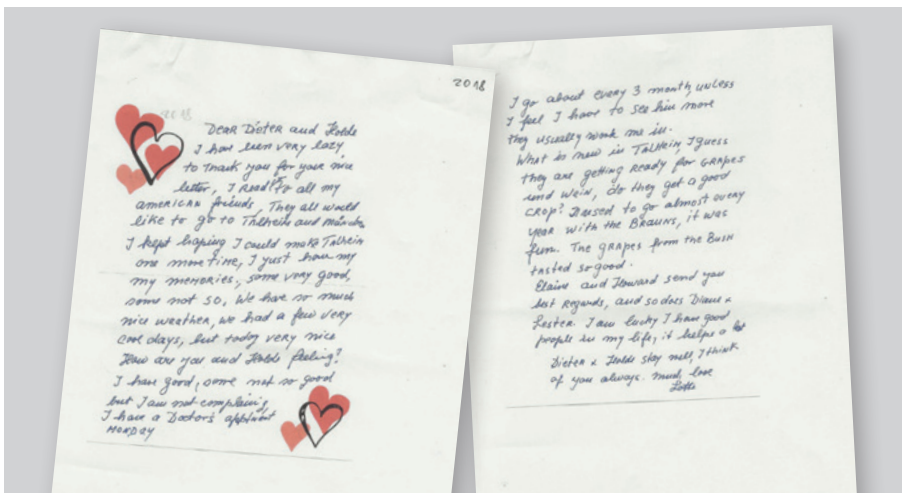 2018
2018
Dear Dieter and Holde
I have been very lazy
to thank you for your nice
letter, I Read it to all my
american friends, They all would
like to go to Talheim and
I kept hoping I could make Talheim
one more time, I just have my
my memories, some very good,
some not so. We have so much
nice weather, we had a few very
cool days, but today very nice
How are you and Holde feeling?
I have good, some not so good
but I am not complaing
I have a Doctor's
Monday
I go about every 3 month, unless
I feel I have to see him more
they usually work me in.
What is new in Talheim, I guess
they are getting Ready for GRAPES
und Wein, do they get a good
CROP? I used to go almost every
year with the BRAUNS, it was
fun. The GRAPES from the Bush
tasted so good.
Elaine and Howard send you
best Regards, and so does Diane &
Lester. I am lucky I have good
people in my life, it helps a lot
Dieter & Holde stay well, I think
of you always. much love
Lotte